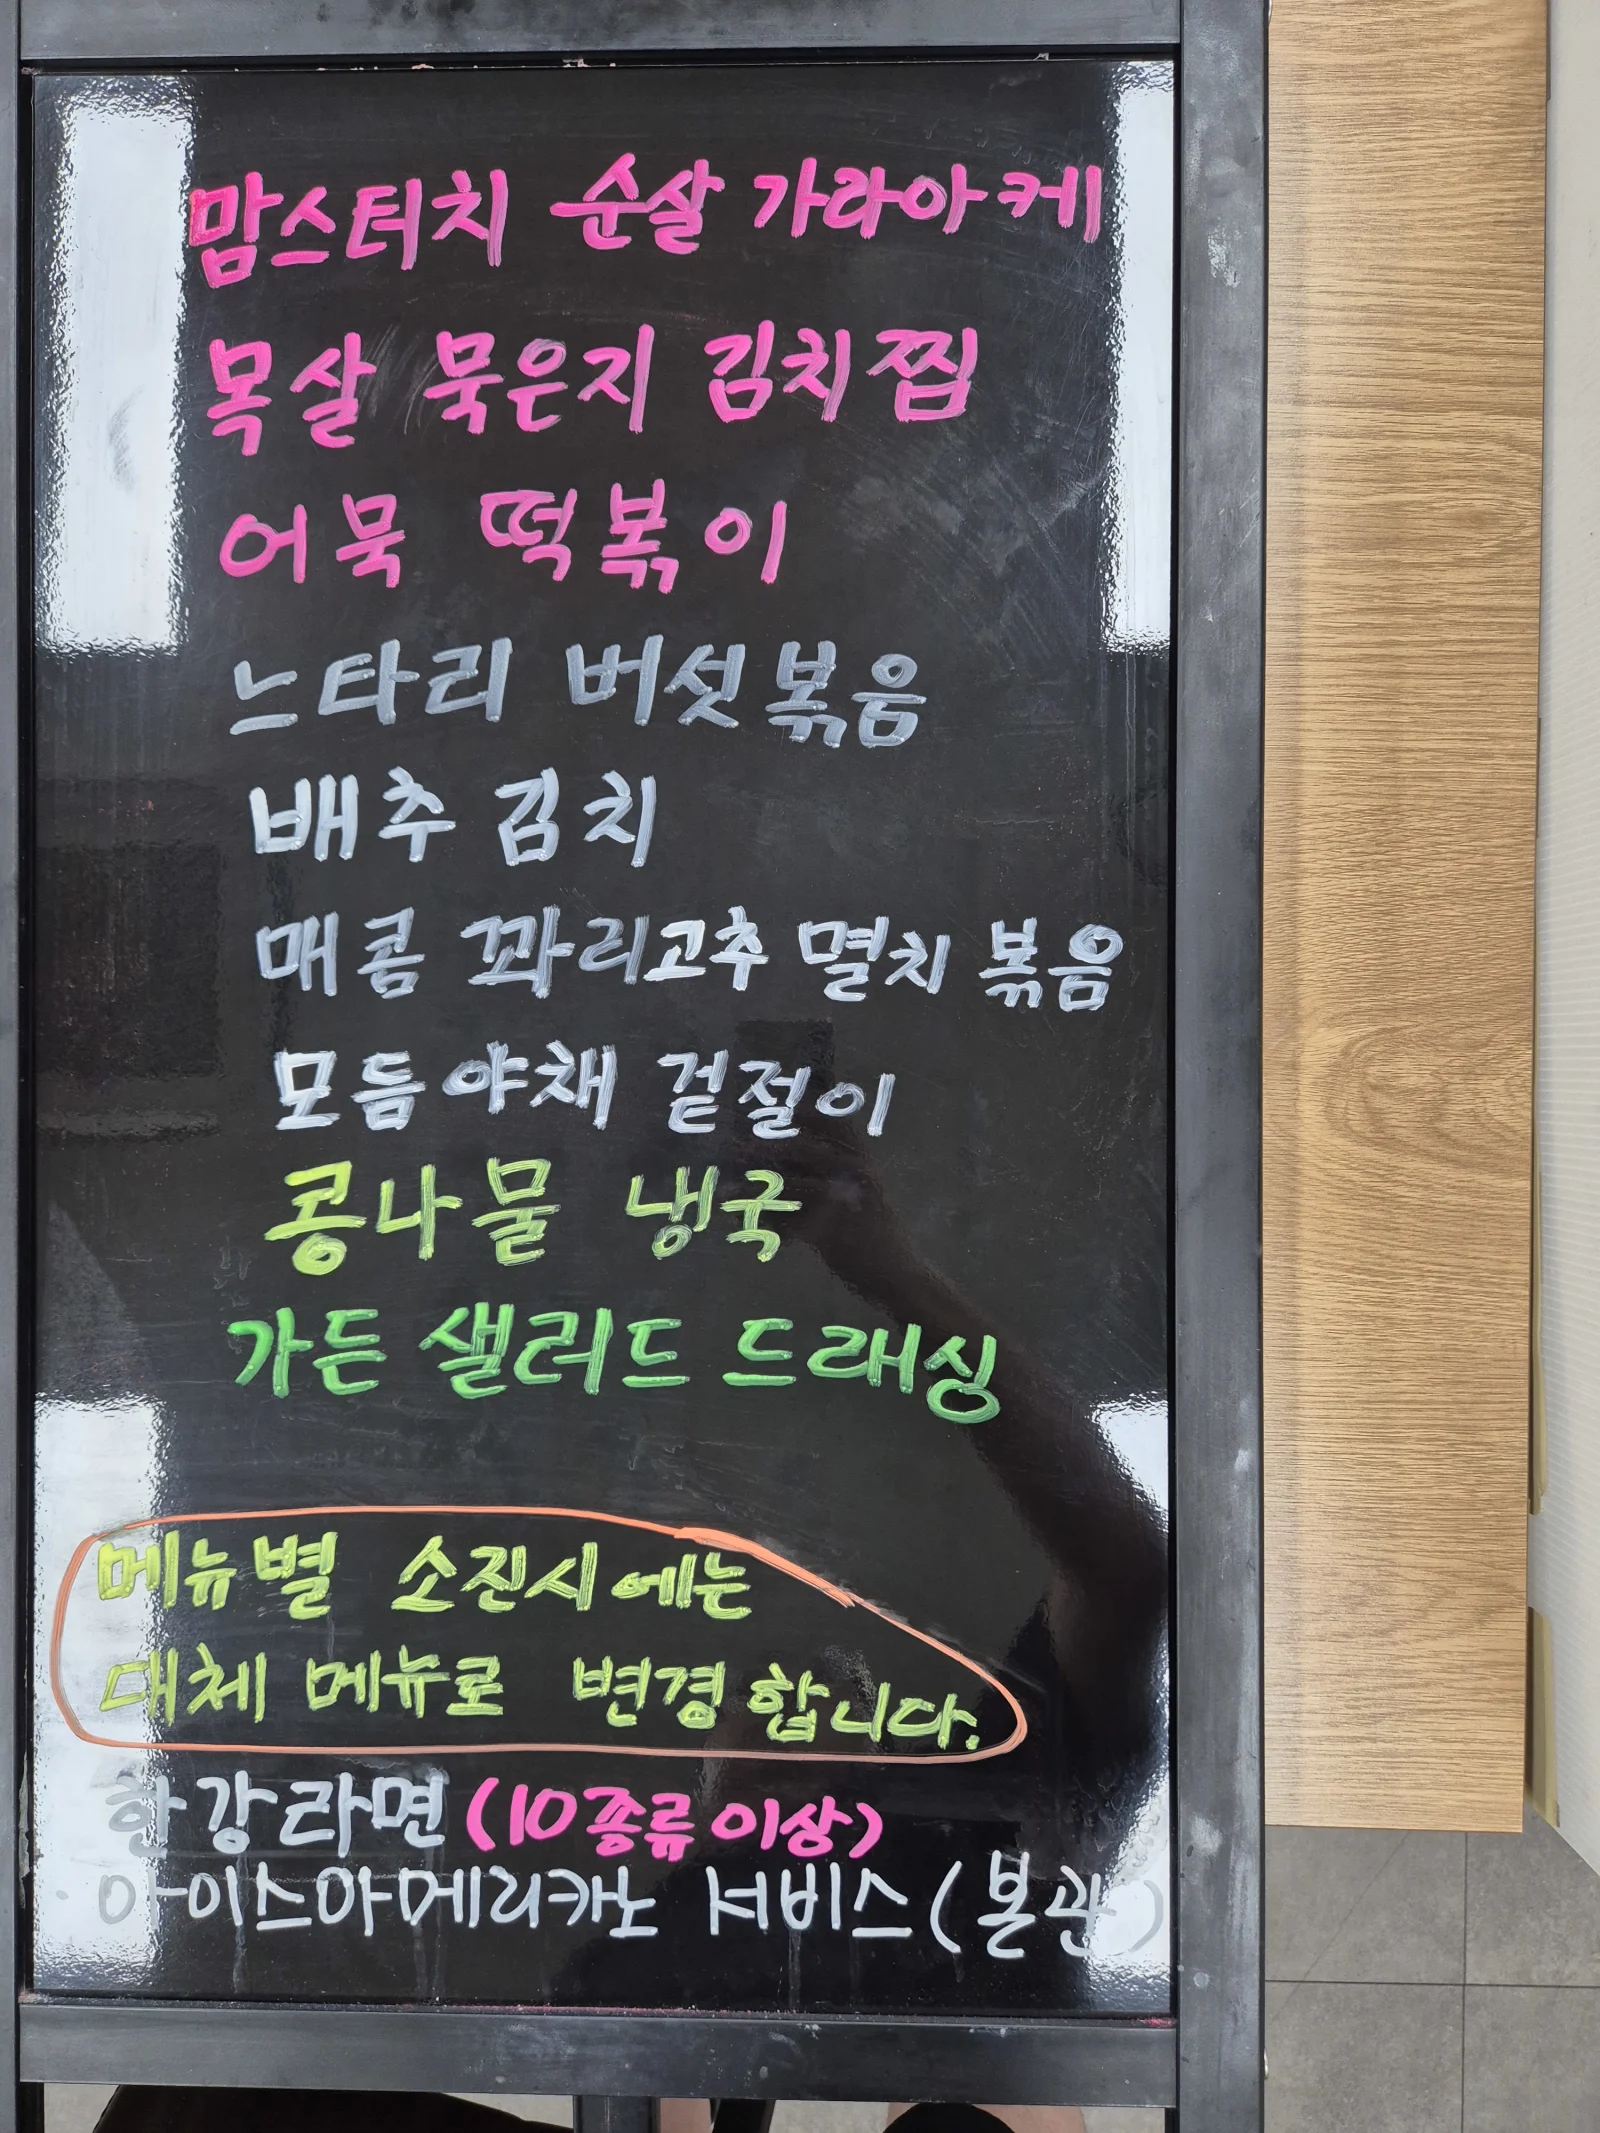 맘스터치 순살 가라아케
목살 묵은지 김치찜
어묵 떡볶이
느타리 버섯볶음
배추 김치
매콤 꽈리고추 멸치 볶음
모듬야채 겉절이
콩나물 냉국
가든 샐러드 드래싱
메뉴별 소진시에는
대체 메뉴로 변경합니다.
한강라면(10종류이상)
아이스아메리카노 서비스(본관)